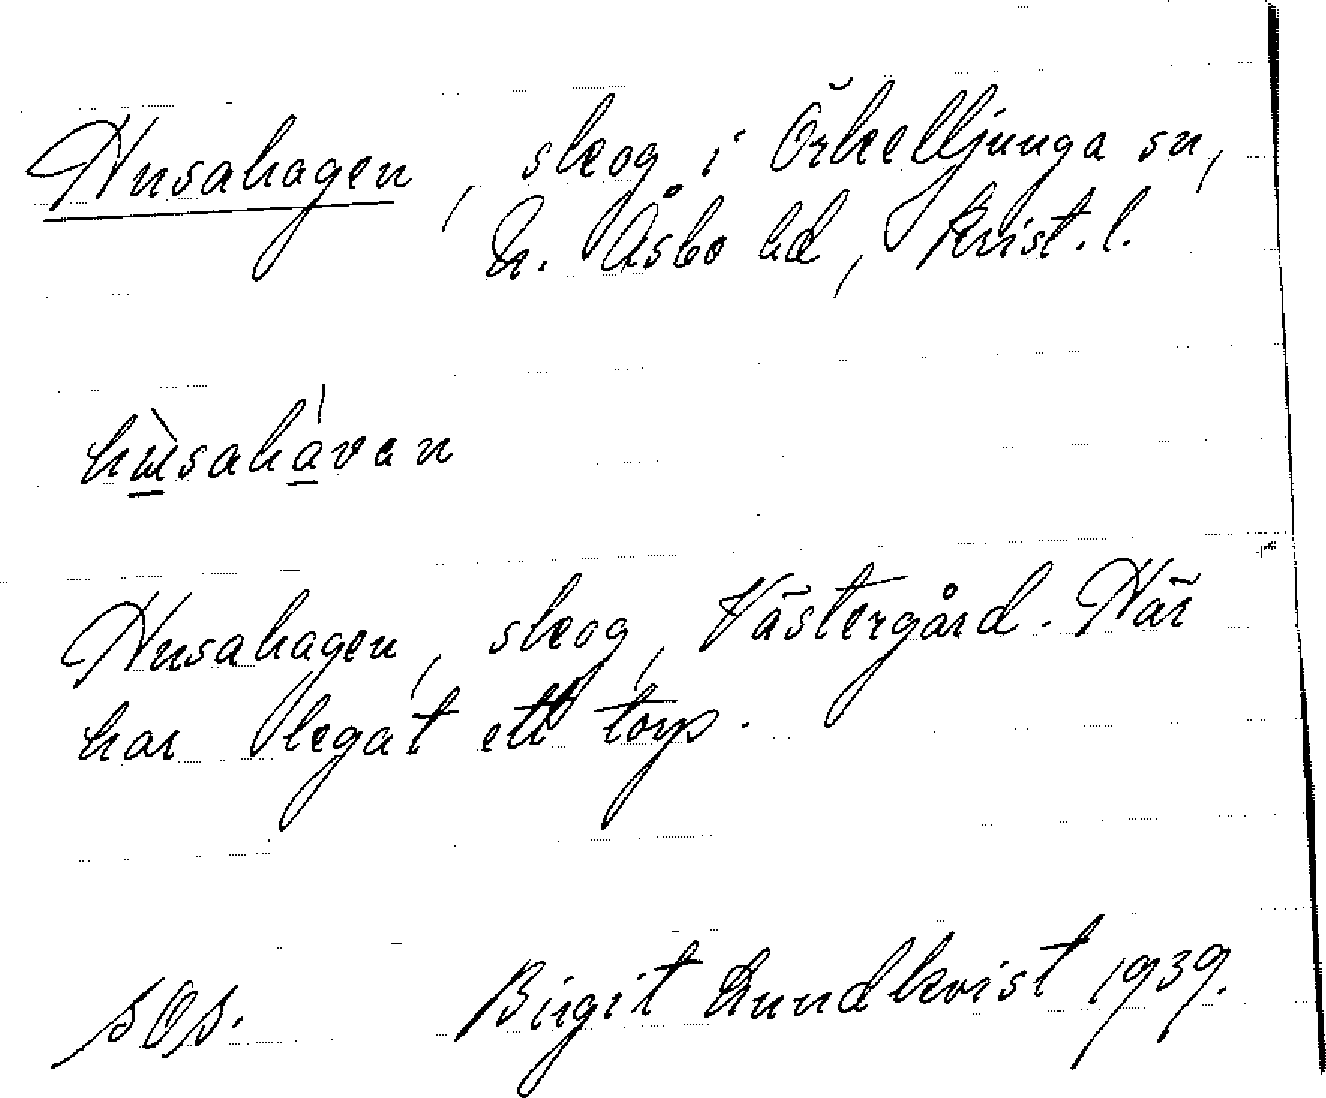 Husahagen, skog i Örkelljunga sn,
N. Åsbo hd, Krist. l.
hùsahávan
Husahagen, skog, Västergård. Här
har legat ett torp.
SOS. Birgit Lundkvist 1939.